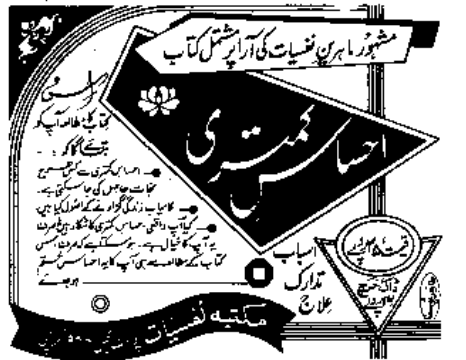 مشہور ماہرینِ نفسیات کی آرا پر مشتمل کتاب
احساسِ کمتری
اس
کتاب کا مطالعہ آپ کو
بتائے گا کہ
احساس کمتری سے کس طرح
نجات حاصل کی جا سکتی ہے۔
کامیاب زندگی گزارنے کے اصول کیا ہیں
کیا آپ واقعی احساس کمتری کا شکار ہیں یا صرف
یہ آپ کا خیال ہے۔ ہو سکتا ہے کہ صرف اس
کتاب کے مطالعہ سے ہی آپ کا یہ احساس ختم
ہو جائے
اسباب
تدارک
علاج
قیمت
ڈاک خرچ
مکتبہ نفسیات پوسٹ بکس